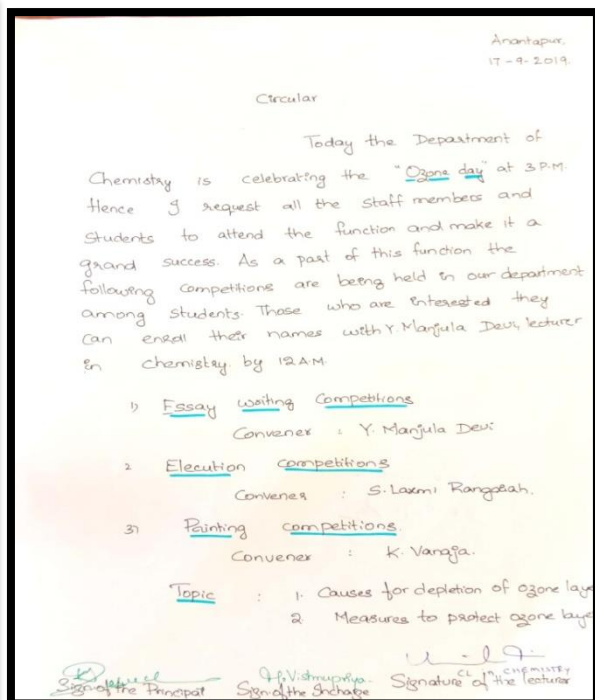 Anantapur,
17-9-2019.
Circular
Today the Department of
Chemistry is celebrating the "Ozone day" at 3 P.M.
Hence I request all the staff members and
students to attend the function and make it a
grand success. As a part of this function the
following competitions are being held in our department
among students. Those who are interested they
can enroll their names with Y. Manjula Devi, lecturer
in chemistry. by 12 A.M.
1) Essay writing Competitions
Convener : Y. Manjula Devi
2 Elecution Competitions
Convener : S. Laxmi Rangaiah.
3) Painting competitions.
Convener : K. Vanaja.
Topic : 1. Causes for depletion of ozone laye
2. Measures to protect ozone laye
Vishnupriya.
CL in CHEMISTRY
Sign of the Principal Sign of the Incharge Signature of the lecturer